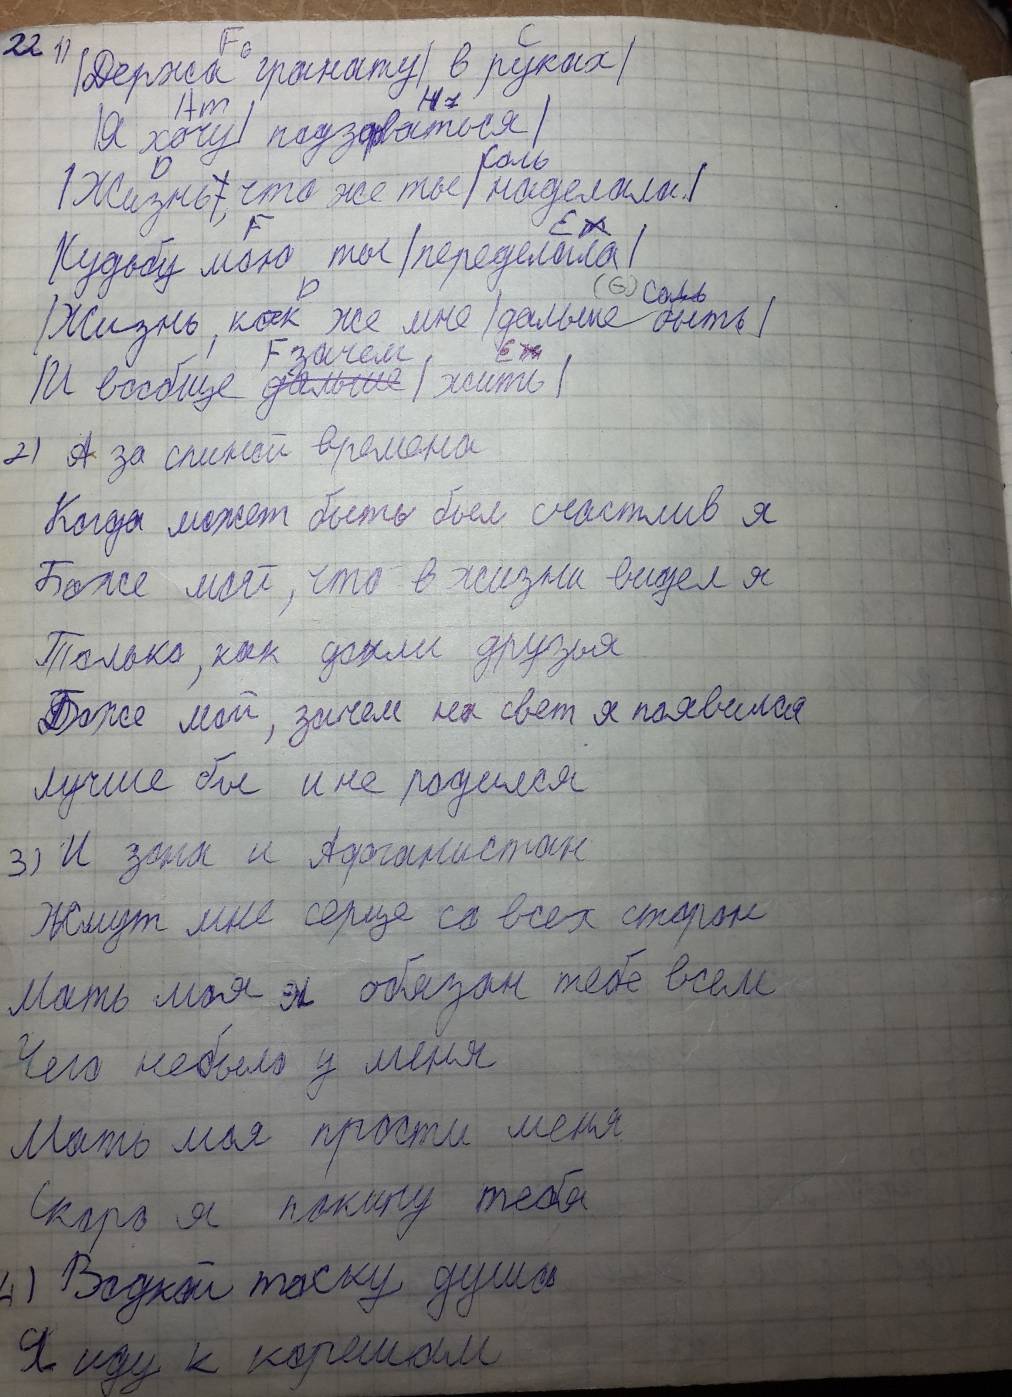 22 1) F6 C
|Держа гранату| в руках|
Am H7
|Я хочу| подзорваться|
D Соль
|Жизнь, что же ты |наделала|
F Em
|Судьбу мою ты |переделала|
D (G) Соль
|Жизнь, как же мне |дальше быть|
F зачем Em
|И вообще дальше | жить|
2) А за спиной времена
Когда может быть был счастлив я
Боже мой, что в жизни видел я
Только, как дохли друзья
Боже мой, зачем на свет я появился
лучше бы и не родился
3) И зона и Афганистан
Жмут мне серце со всех сторон
Мать моя я обязан тебе всем
Чего небыло у меня
Мать моя прости меня
Скоро я покину тебя
4) Водкой таску душа
Я иду к корешам